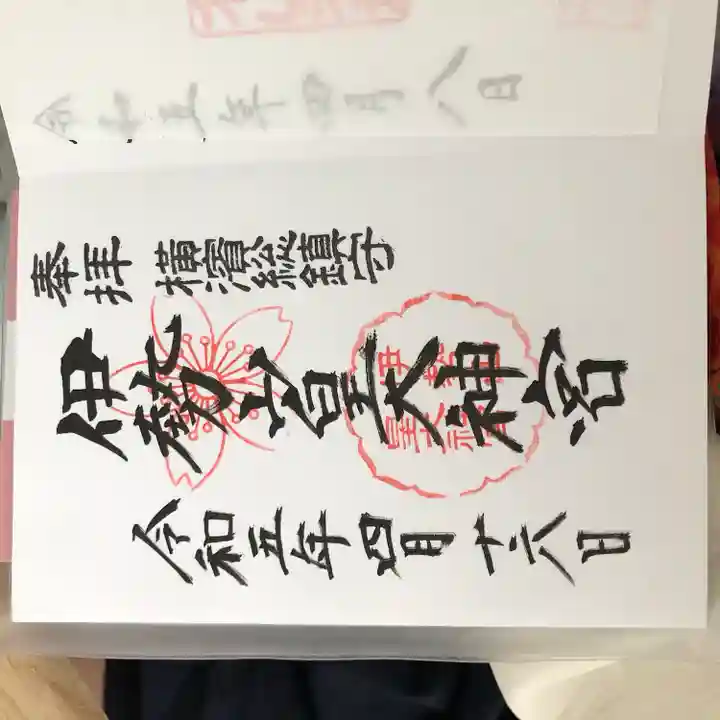 令和五年四月八日
奉拝 横濱総鎮守
伊勢山皇大神宮
令和五年四月十六日